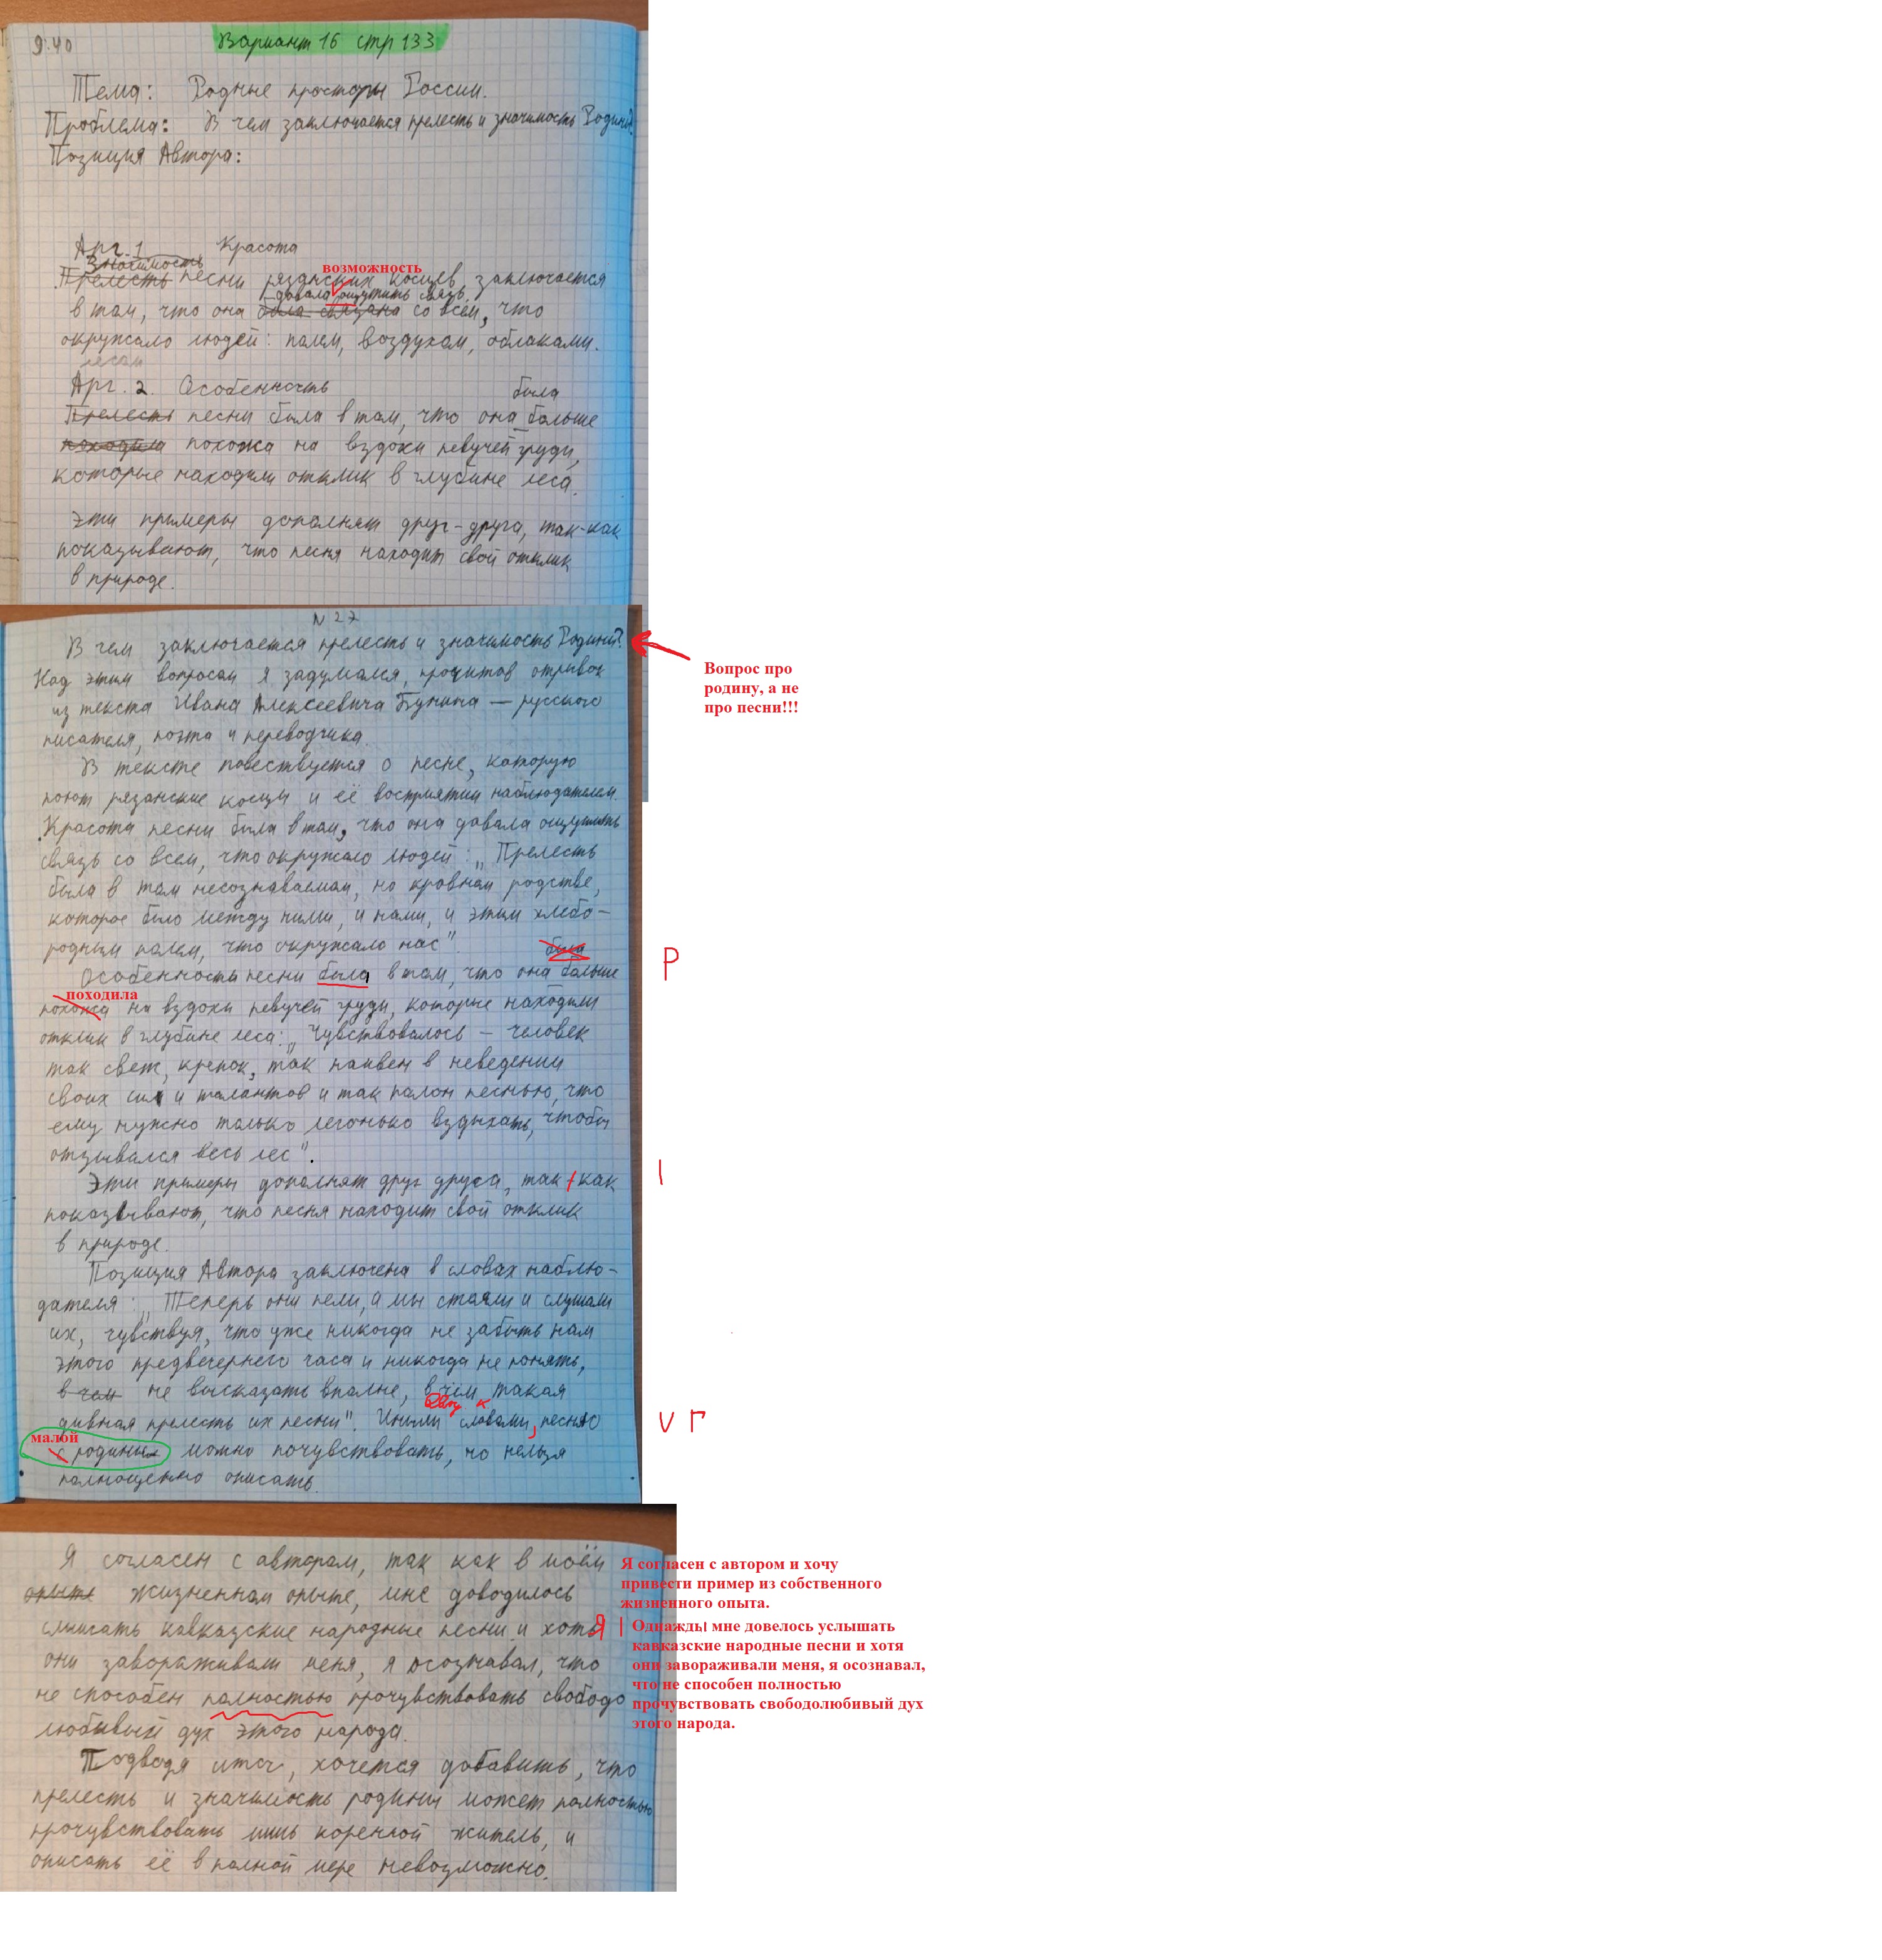 9:40
Вариант 16 стр 133
Тема: Родные просторы России.
Проблема: В чем заключается прелесть и значимость Родины?
Позиция Автора:
Арг. 1 Красота
Значимость
возможность
Прелесть песни рязанских косцев заключается
давала ощутить связь
в том, что она была связана со всем, что
окружало людей: полем, воздухом, облаками.
лесом
Арг. 2. Особенность
была
Прелесть песни была в том, что она больше
походила похожа на вздохи певучей груди,
которые находили отклик в глубине леса.
Эти примеры дополнят друг-друга, так-как
показывают, что песня находит свой отклик
в природе.
N 27
В чем заключается прелесть и значимость Родины?
Над этим вопросом я задумался, прочитав отрывок
из текста Ивана Алексеевича Бунина — русского
писателя, поэта и переводчика.
Вопрос про
родину, а не
про песни!!!
В тексте повествуется о песне, которую
поют рязанские косцы и её восприятии наблюдателем.
Красота песни была в том, что она давала ощутить
связь со всем, что окружало людей: „Прелесть
была в том несознаваемом, но кровном родстве,
которое было между ними, и нами, и этим хлебо-
родным полем, что окружало нас".
была
Р
Особенность песни была в том, что она больше
походила
похожа на вздохи певучей груди, которые находили
отклик в глубине леса: „Чувствовалось — человек
так свеж, крепок, так наивен в неведении
своих сил и талантов и так полон песнью, что
ему нужно только легонько вздыхать, чтобы
отзывался весь лес".
Эти примеры дополнят друг друга, так как
показывают, что песня находит свой отклик
в природе.
Позиция Автора заключена в словах наблю-
дателя: „Теперь они пели, а мы стояли и слушали
их, чувствуя, что уже никогда не забыть нам
этого предвечернего часа и никогда не понять,
в чем не высказать вполне, в чём такая
дивная прелесть их песни". Иными словами, песню
V Г
малой
с родины можно почувствовать, но нельзя
полноценно описать.
Я согласен с автором, так как в моём
опыте жизненном опыте, мне доводилось
слышать кавказские народные песни и хотя
они завораживали меня, я осознавал, что
не способен полностью прочувствовать свободо
любивый дух этого народа.
Я согласен с автором и хочу
привести пример из собственного
жизненного опыта.
Я | Однажды мне довелось услышать
кавказские народные песни и хотя
они завораживали меня, я осознавал,
что не способен полностью
прочувствовать свободолюбивый дух
этого народа.
Подводя итог, хочется добавить, что
прелесть и значимость родины может полностью
прочувствовать лишь коренной житель, и
описать её в полной мере невозможно.